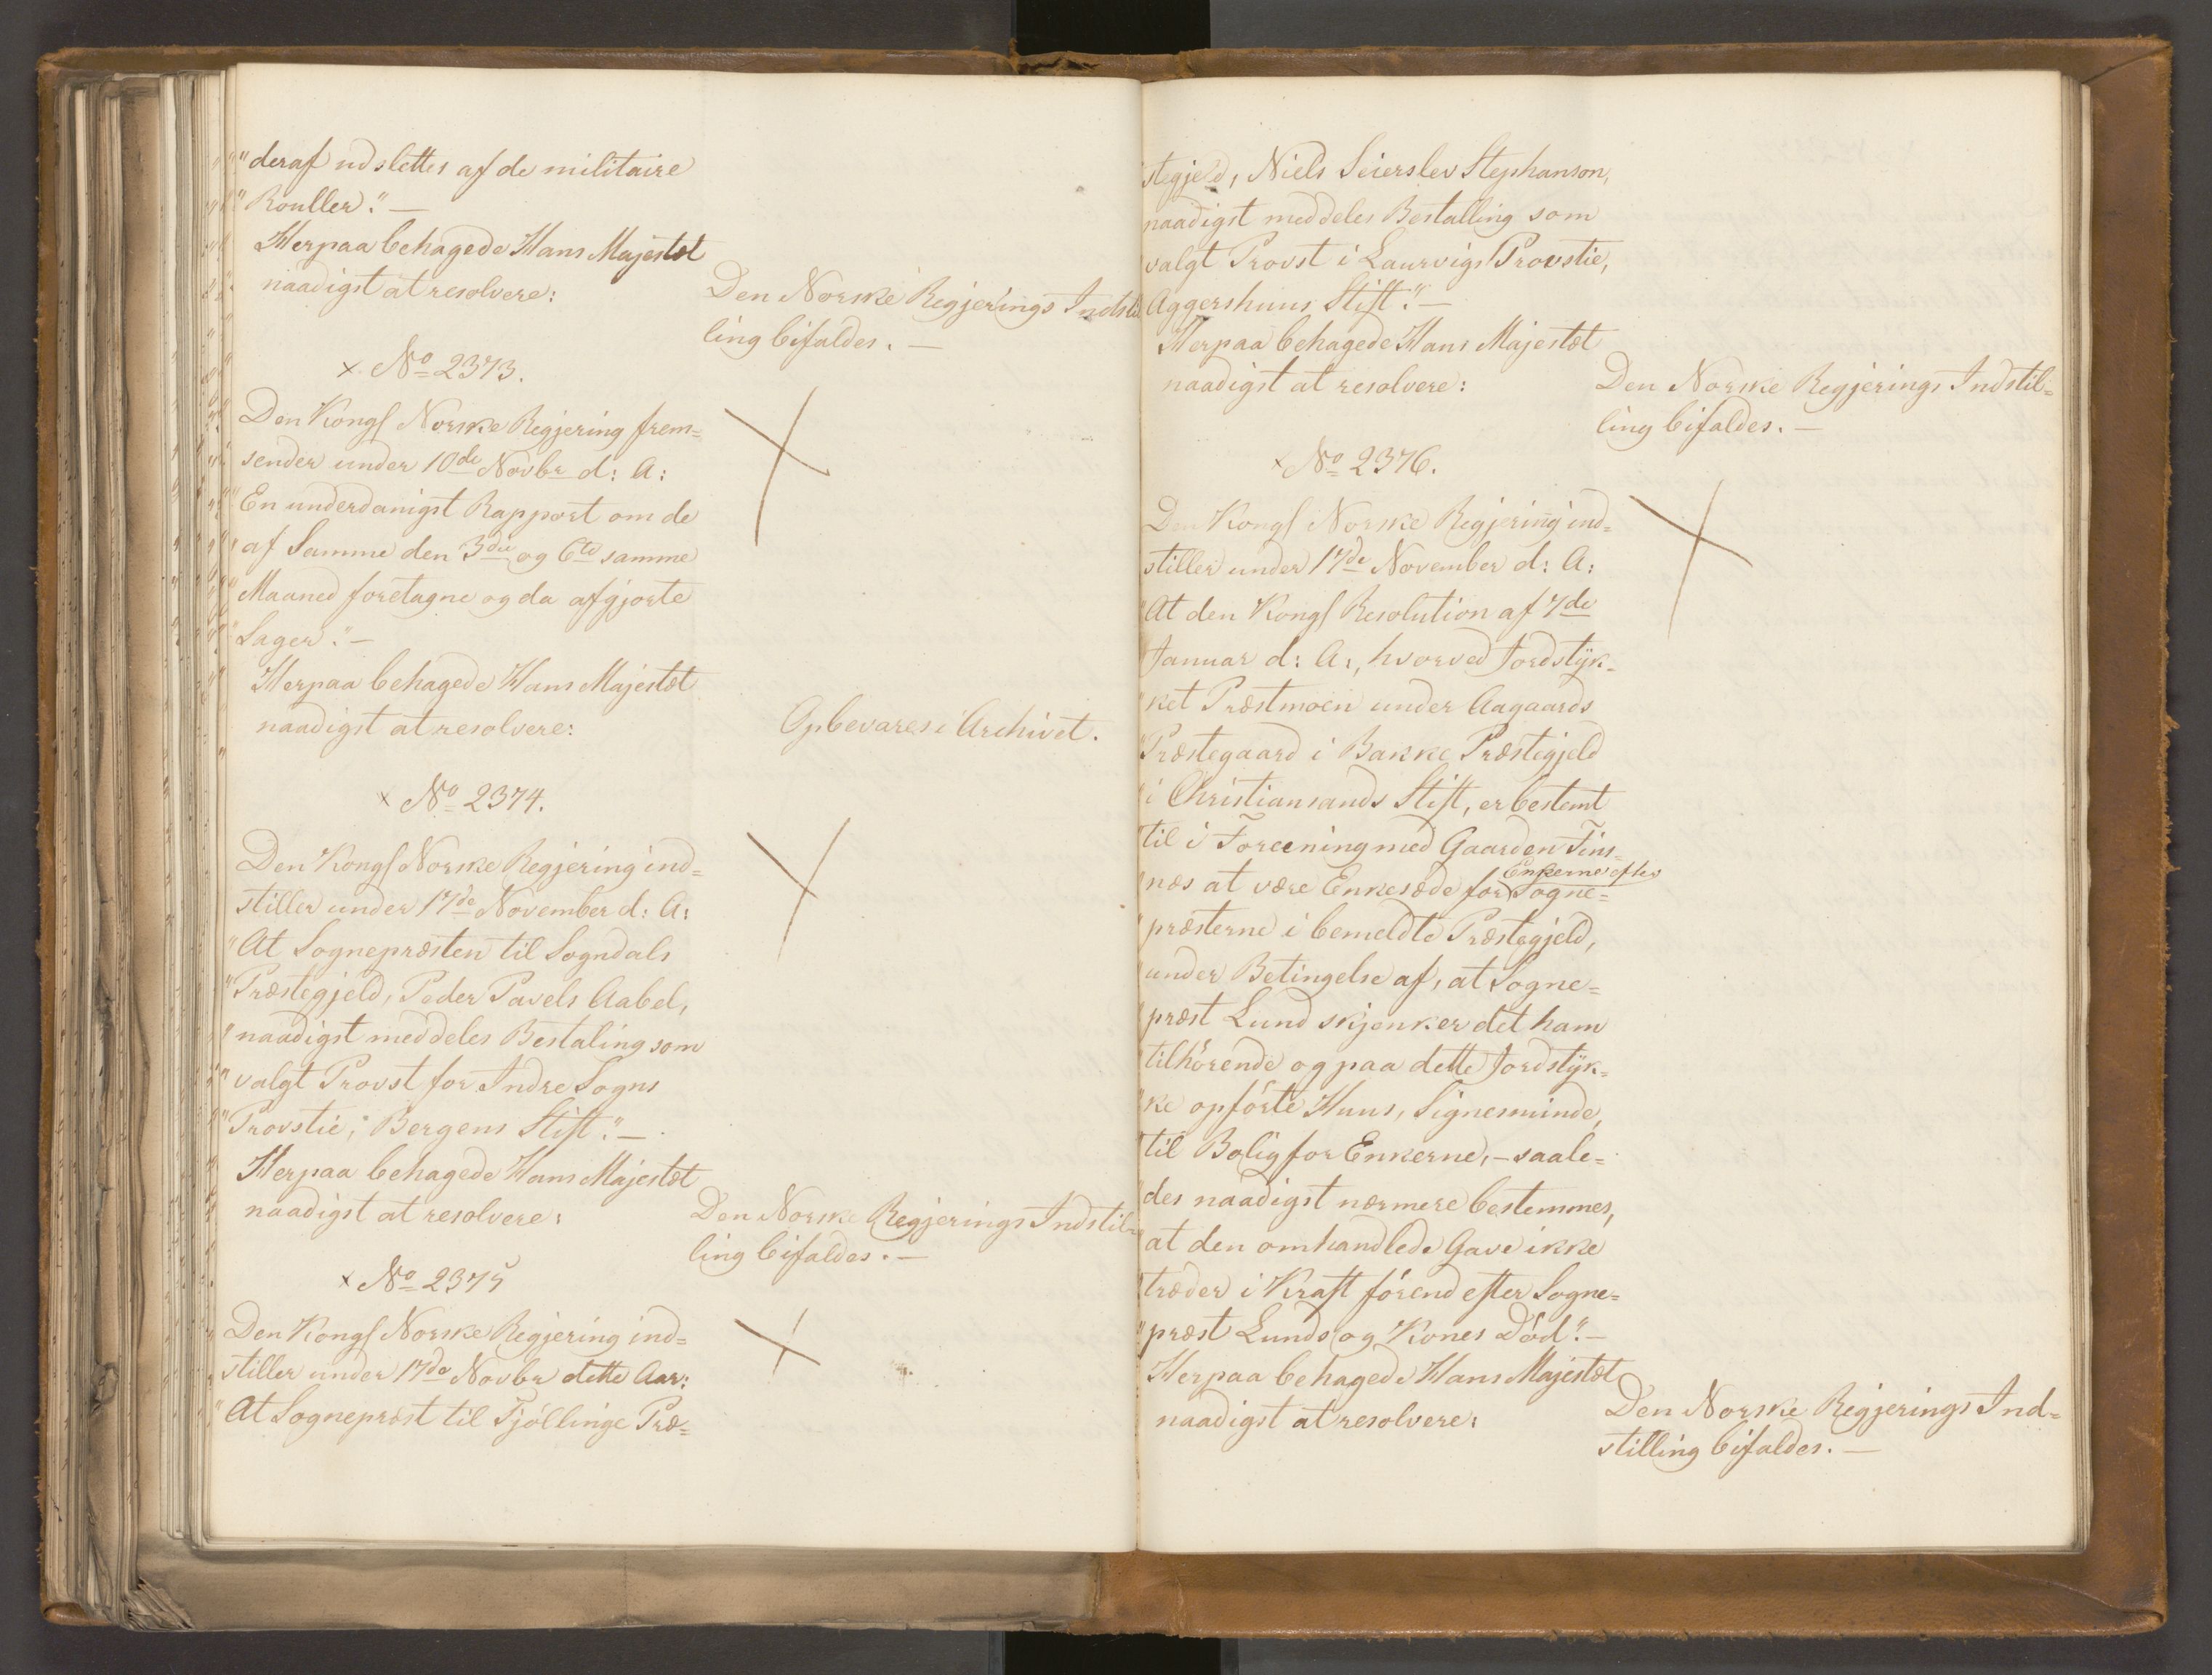 "deraf udslettes af de militaire
"Rouller." —
Herpaa behagede Hans Majestæt
naadigst at resolvere:
Den Norske Regjerings Indstil
ling bifaldes. —
× No 2373.
Den Kongl Norske Regjering frem=
sender under 10de Novbr d: A:
"En underdanigst Rapport om de
"af Samme den 3die og 6te samme
"Maaned foretagne og da afgjorte
"Sager." —
Herpaa behagede Hans Majestæt
naadigst at resolvere:
Opbevares i Archivet.
× No 2374.
Den Kongl Norske Regjering ind=
stiller under 17de November d: A:
"At Sognepræsten til Sogndals
"Præstegjeld, Peder Pavels Aabel,
"naadigst meddeles Bestaling som
"valgt Provst for Indre Sogns
"Provstie, Bergens Stift." —
Herpaa behagede Hans Majestæt
naadigst at resolvere:
Den Norske Regjerings Indstil=
ling bifaldes. —
× No 2375
Den Kongl Norske Regjering ind=
stiller under 17de Novbr dette Aar:
"At Sognepræst til Tjøllinge Præ=
stegjeld, Niels Seierslev Stephanson,
naadigst meddeles Bestalling som
valgt Provst i Laurvigs Provstie,
Aggershuus Stift." —
Herpaa behagede Hans Majestæt
naadigst at resolvere:
Den Norske Regjerings Indstil=
ling bifaldes. —
× No 2376.
Den Kongl Norske Regjering ind=
stiller under 17de November d: A:
"At den Kongl Resolution af 7de
Januar d: A:, hvorved Jordstyk=
"ket Præstmoen under Aagaards
"Præstegaard i Bakke Præstegjeld
"i Christiansands Stift, er bestemt
"til i Foreening med Gaarden Tins=
Enkerne efter
"næs at være Enkesæde for Sogne=
"præsterne i bemeldte Præstegjeld,
"under Betingelse af, at Sogne=
"præst Lund skjenker det ham
"tilhörende og paa dette Jordstyk=
"ke opförte Huus, Signesminde,
"til Bolig for Enkerne, – saale=
"des naadigst nærmere bestemmes,
"at den omhandlede Gave ikke
"træder i Kraft förend efter Sogne=
"præst Lunds og Kones Död." —
Herpaa behagede Hans Majestæt
naadigst at resolvere:
Den Norske Regjerings Ind=
stilling bifaldes. —